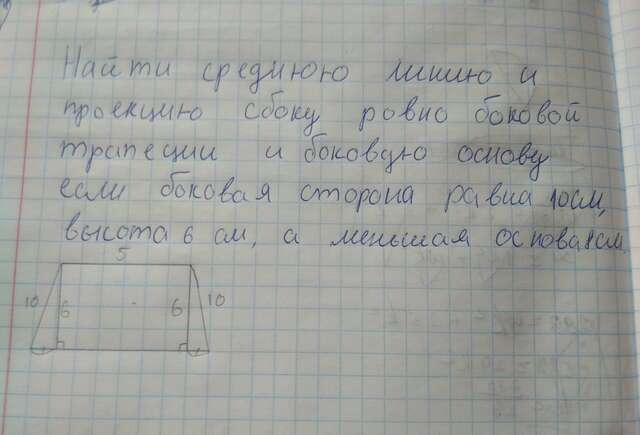 Найти среднюю линию и
проекцию сбоку ровно боковой
трапеции и боковую основу
если боковая сторона равна 10 см,
высота 6 см, а меньшая основа см.
5
10 6 6 10